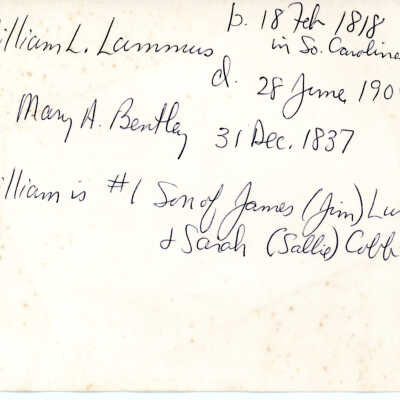 illiam L. Lammus
b. 18 Feb 1818
in So. Carolina
d. 28 June, 190
Mary A. Bentley 31 Dec. 1837
illiam is #1 Son of James (Jim) Lu
& Sarah (Sallie) Cobb